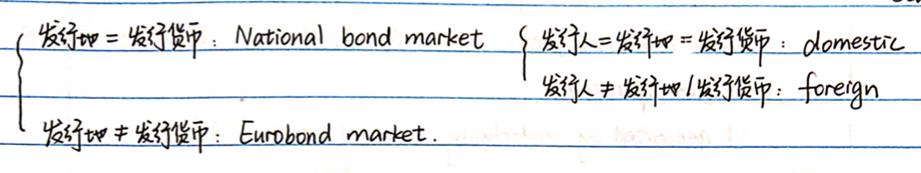 发行地 = 发行货币： National bond market { 发行人 = 发行地 = 发行货币： domestic
发行人 ≠ 发行地 / 发行货币： foreign
发行地 ≠ 发行货币： Eurobond market.